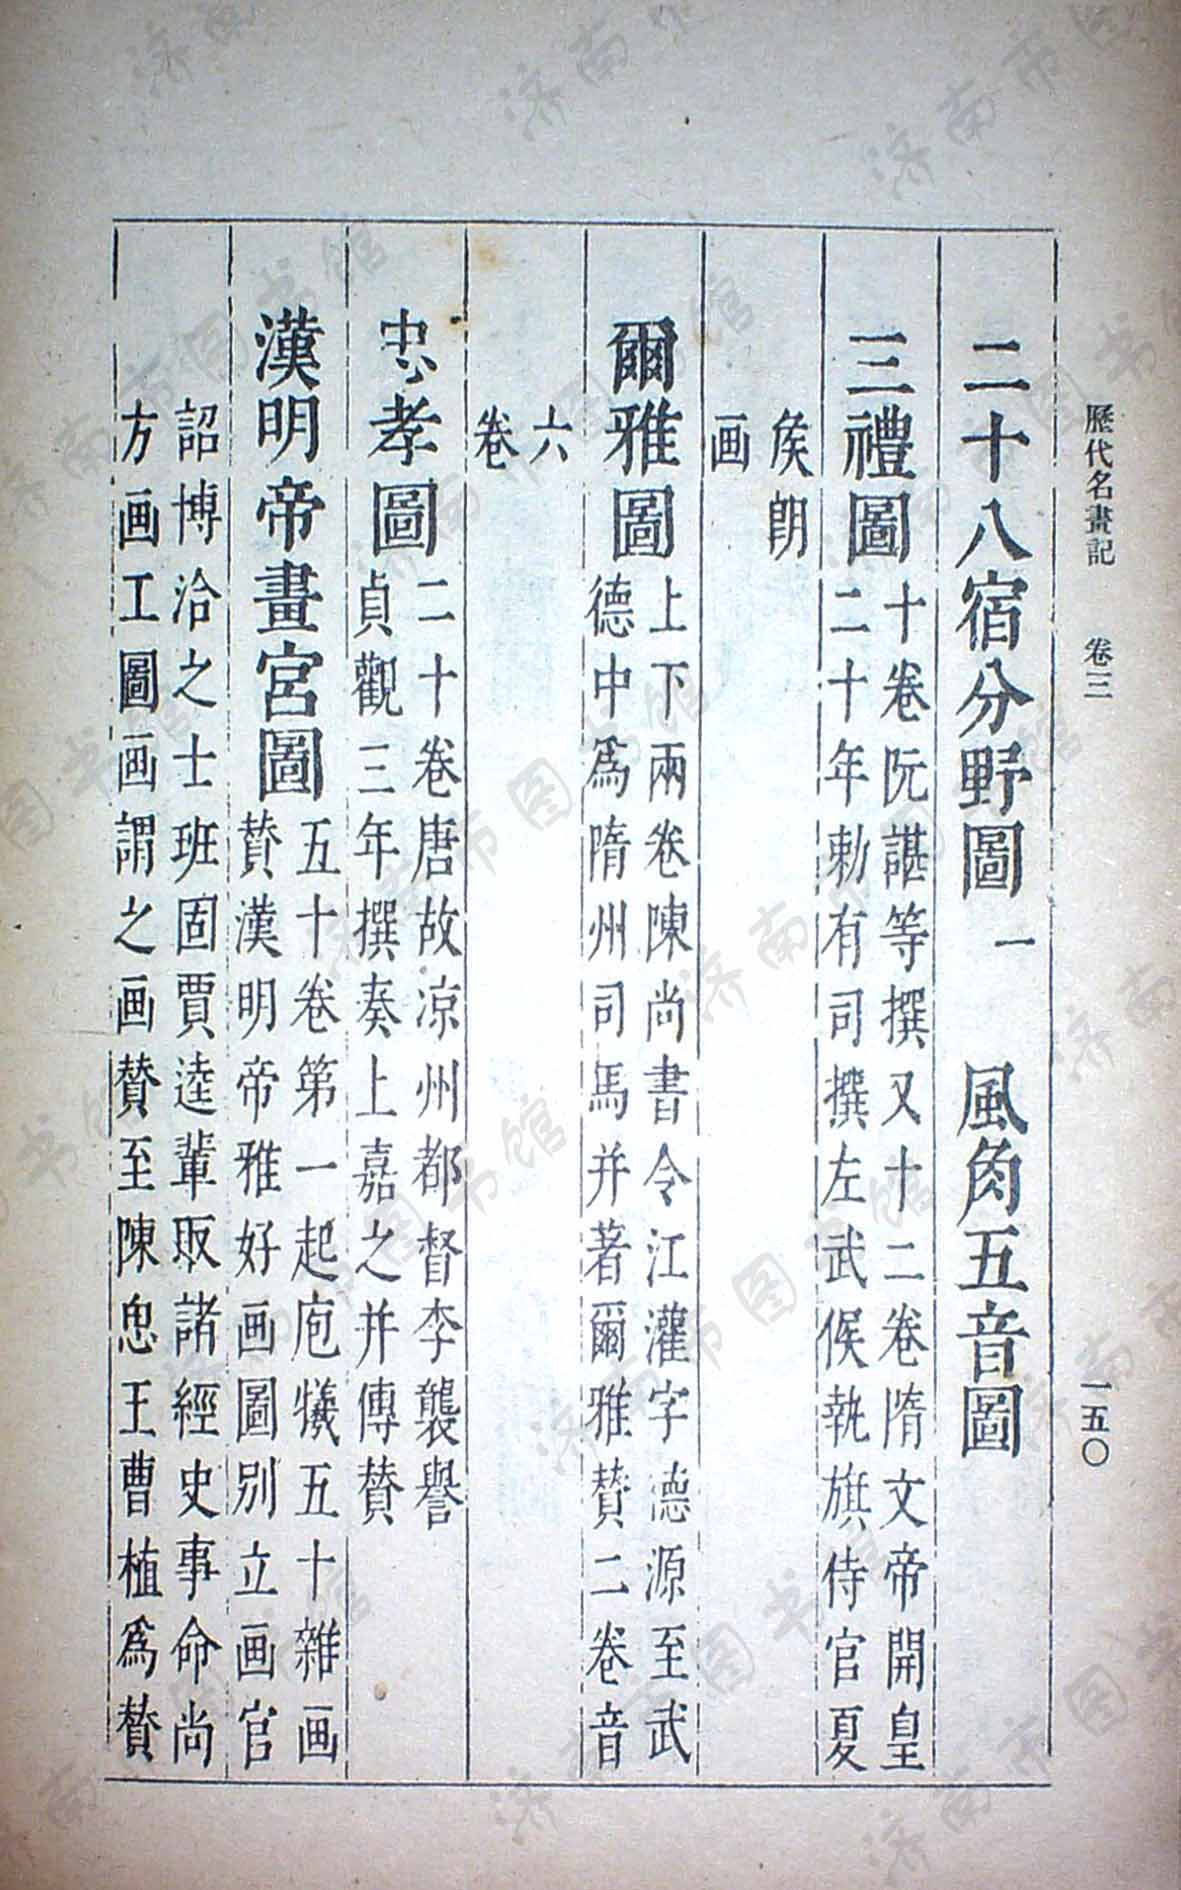 歷代名畫記 卷三 一五〇
二十八宿分野圖一 風角五音圖
三禮圖
十卷阮諶等撰又十二卷隋文帝開皇
二十年勅有司撰左武候執旗侍官夏
侯朗
画
爾雅圖
上下兩卷陳尚書令江灌字德源至武
德中爲隋州司馬并著爾雅賛二卷音
六
卷
忠孝圖
二十卷唐故凉州都督李襲譽
貞觀三年撰奏上嘉之并傳賛
漢明帝畫宮圖
五十卷第一起庖犧五十雜画
賛漢明帝雅好画圖別立画官
詔博洽之士班固賈逵輩取諸經史事命尚
方画工圖画謂之画賛至陳思王曹植爲賛
济南市图书馆